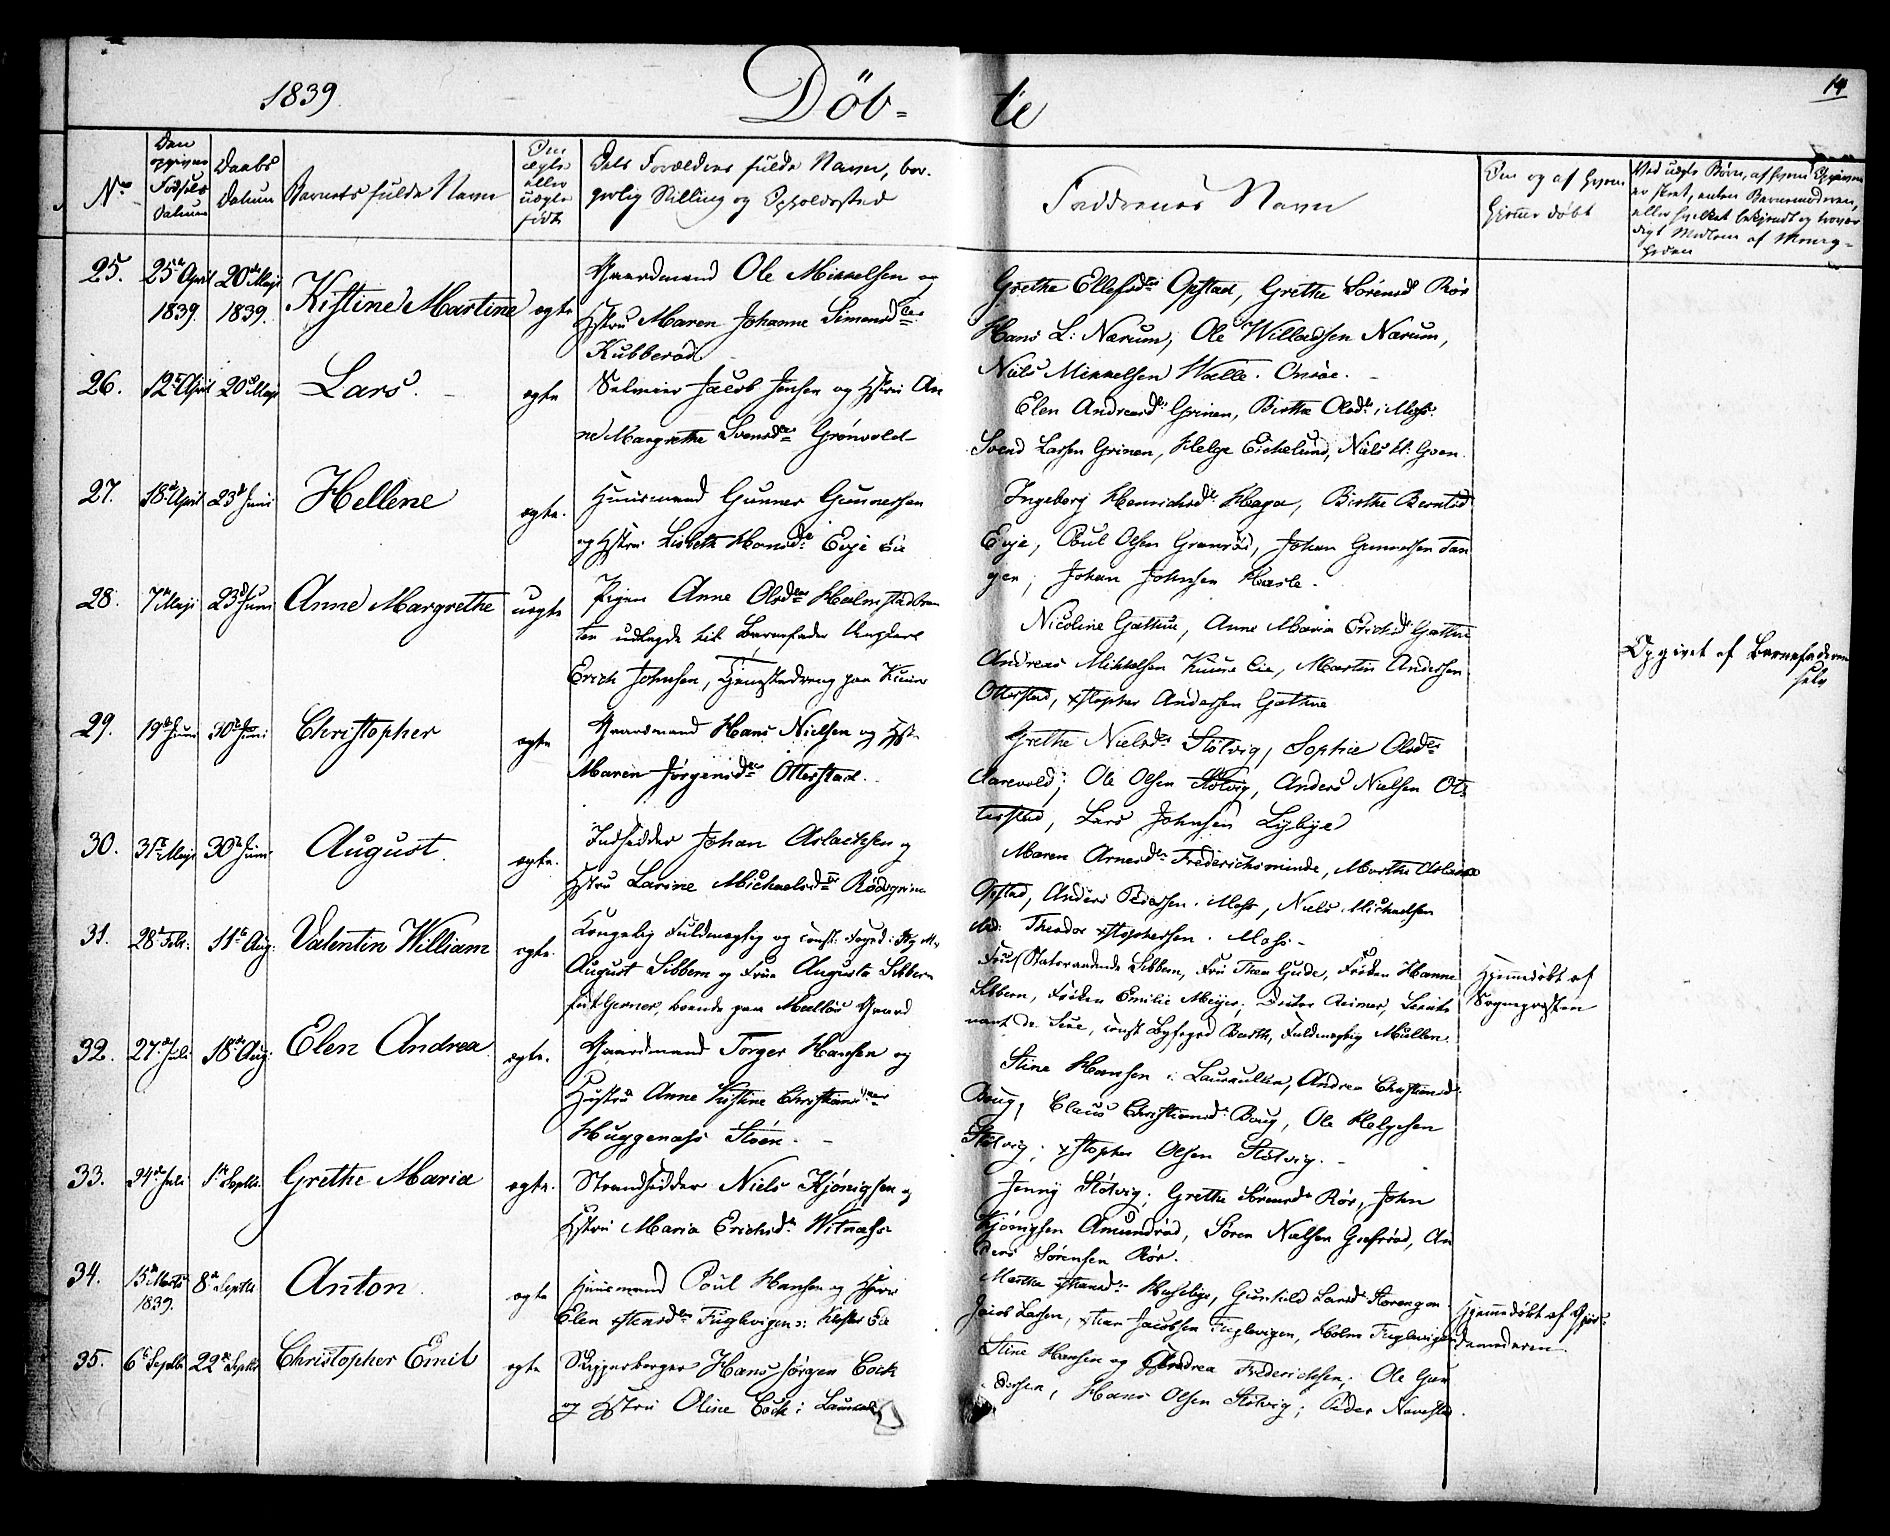 1839.
Döb-
te
14
No
Den opgivne Fødsels Datum
Daabs Datum
Barnets fulde Navn
Om ægte eller uægte født
Dets Forældres fulde Navn, borgerlig Stilling og Opholdssted
Faddrenes Navn
Om og af hvem hjemmedøbt
25. 25de April 1839. 20de Maji 1839. Kistine Martine ægte
Gaardmand Ole Mikkelsen og
Hstru Maren Johanne Simensd
Kubberød
Grethe Ellefsd Opstad, Grethe Sörensd Rör
Hans L: Nærum, Ole Willadsen Nærum,
Niels Mikkelsen Walle. Onsöe.
26. 12te April 20de Maji Lars. ægte
Selveier Jacob Jensen og Hstru An
ne Margrethe Svensd Grönvold
Elen Andreasd Grinen, Birthe Olsd i Moss.
Svend Larsen Grinen, Helge Eichelund, Niels
27. 18de April 23de Juni Hellene ægte.
Huusmand Gunner Gunnersen
og Hstru Lisbeth Hansd Evje Eie
Ingeborg Henrichsd Haga, Birthe Berntsd
Evje, Poul Olsen Grænröd, Johan Gunnersen Tan
gen, Johan Johnsen Harle.
28. 7de Maji 23de Juni Anne Margrethe uægte
Pigen Anne Olsd Halmstadbra
ten udlagde til Barnefader Ungkarl
Erich Johnsen, Tjenestedreng paa Kuure
Nicoline Gæthne, Anne Maria Erichsd Gæthne
Andreas Mikkelsen Kuure Eie, Martin Andersen
Otterstad, xstopher Andersen Gæthne
Opgivet af Barnefaderen
selv
29. 19de Juni 30te Juni Christopher ægte
Gaardmand Hans Nielsen og Hst.
Maren Jørgensd Otterstad.
Grethe Nielsd Stötvig, Sophie Olsd
Aarevold, Ole Olsen Stötvig, Anders Nielsen Ot-
terstad, Lars Johnsen Lybye
30. 31te Maji 30te Juni August. ægte.
Indsidder Johan Aslachsen og
Hstru Larine Michaelsd Rödsgrinn
Maren Arnesd Frederichsminde, Marthe
Opstad, Anders Pedersen. Moss, Niels Michaelsen
Theodor xstophersen. Moss.
31. 28de Febr: 11te Aug: Valentin William ægte.
Kongelig Fuldmægtig og const: Foged
August Sibbern og Frue Augusta Sibbern
født Gerner, boende paa Melløs Gaard
Fru Statsraadinde Sibbern, Fru Thea Gude, Fröken Hanne
Sibbern, Fröken Emilie Meyer, Reimer,
const Byfoged Barth, Fuldmægtig Müllen.
Hjemmedöbt af
Sognepresten
32. 27de Juli 18de Aug: Elen Andrea ægte.
Gaardmand Torger Hansen og
Hustru Anne Kistine Christiansd
Huggenæss Støen.
Stine Hansen i Laurkullen, Andrea Christiansd
Boug, Claus Christiansd Boug, Ole Helgesen
Stötvig, xstopher Olsen Stötvig.
33. 24de Juli 1te Septbr. Grethe Maria ægte.
Strandsidder Niels Kjönigsen og
Hstru Maria Erichsd Witnæss
Jenny Stötvig, Grethe Sörensd Rör, John
Kjönigsen Amundröd, Sören Nielsen Grefsröd, An
ders Sörensen Rör.
34. 15de Marts 1839. 8de Septbr Anton. ægte
Huusmand Poul Hansen og Hstru
Elen xstensd Fuglevigen: Kloster Eie
Marthe xstensd Haselbye, Gunhild Larsd
Jacob Larsen, xstian Jacobsen Fuglevigen, Holm Fuglevigen
Hjemmedöbt af Gjor-
demoderen
35. 6te Septbr 22de Septbr Christopher Emil ægte
Skipperborger Hans Jörgen Cock
og Hstru Oline Cock i
Stine Hansen og Andrea Frederichsen, Ole Gun
dersen, Hans Olsen Stötvig, Peder Navestad.